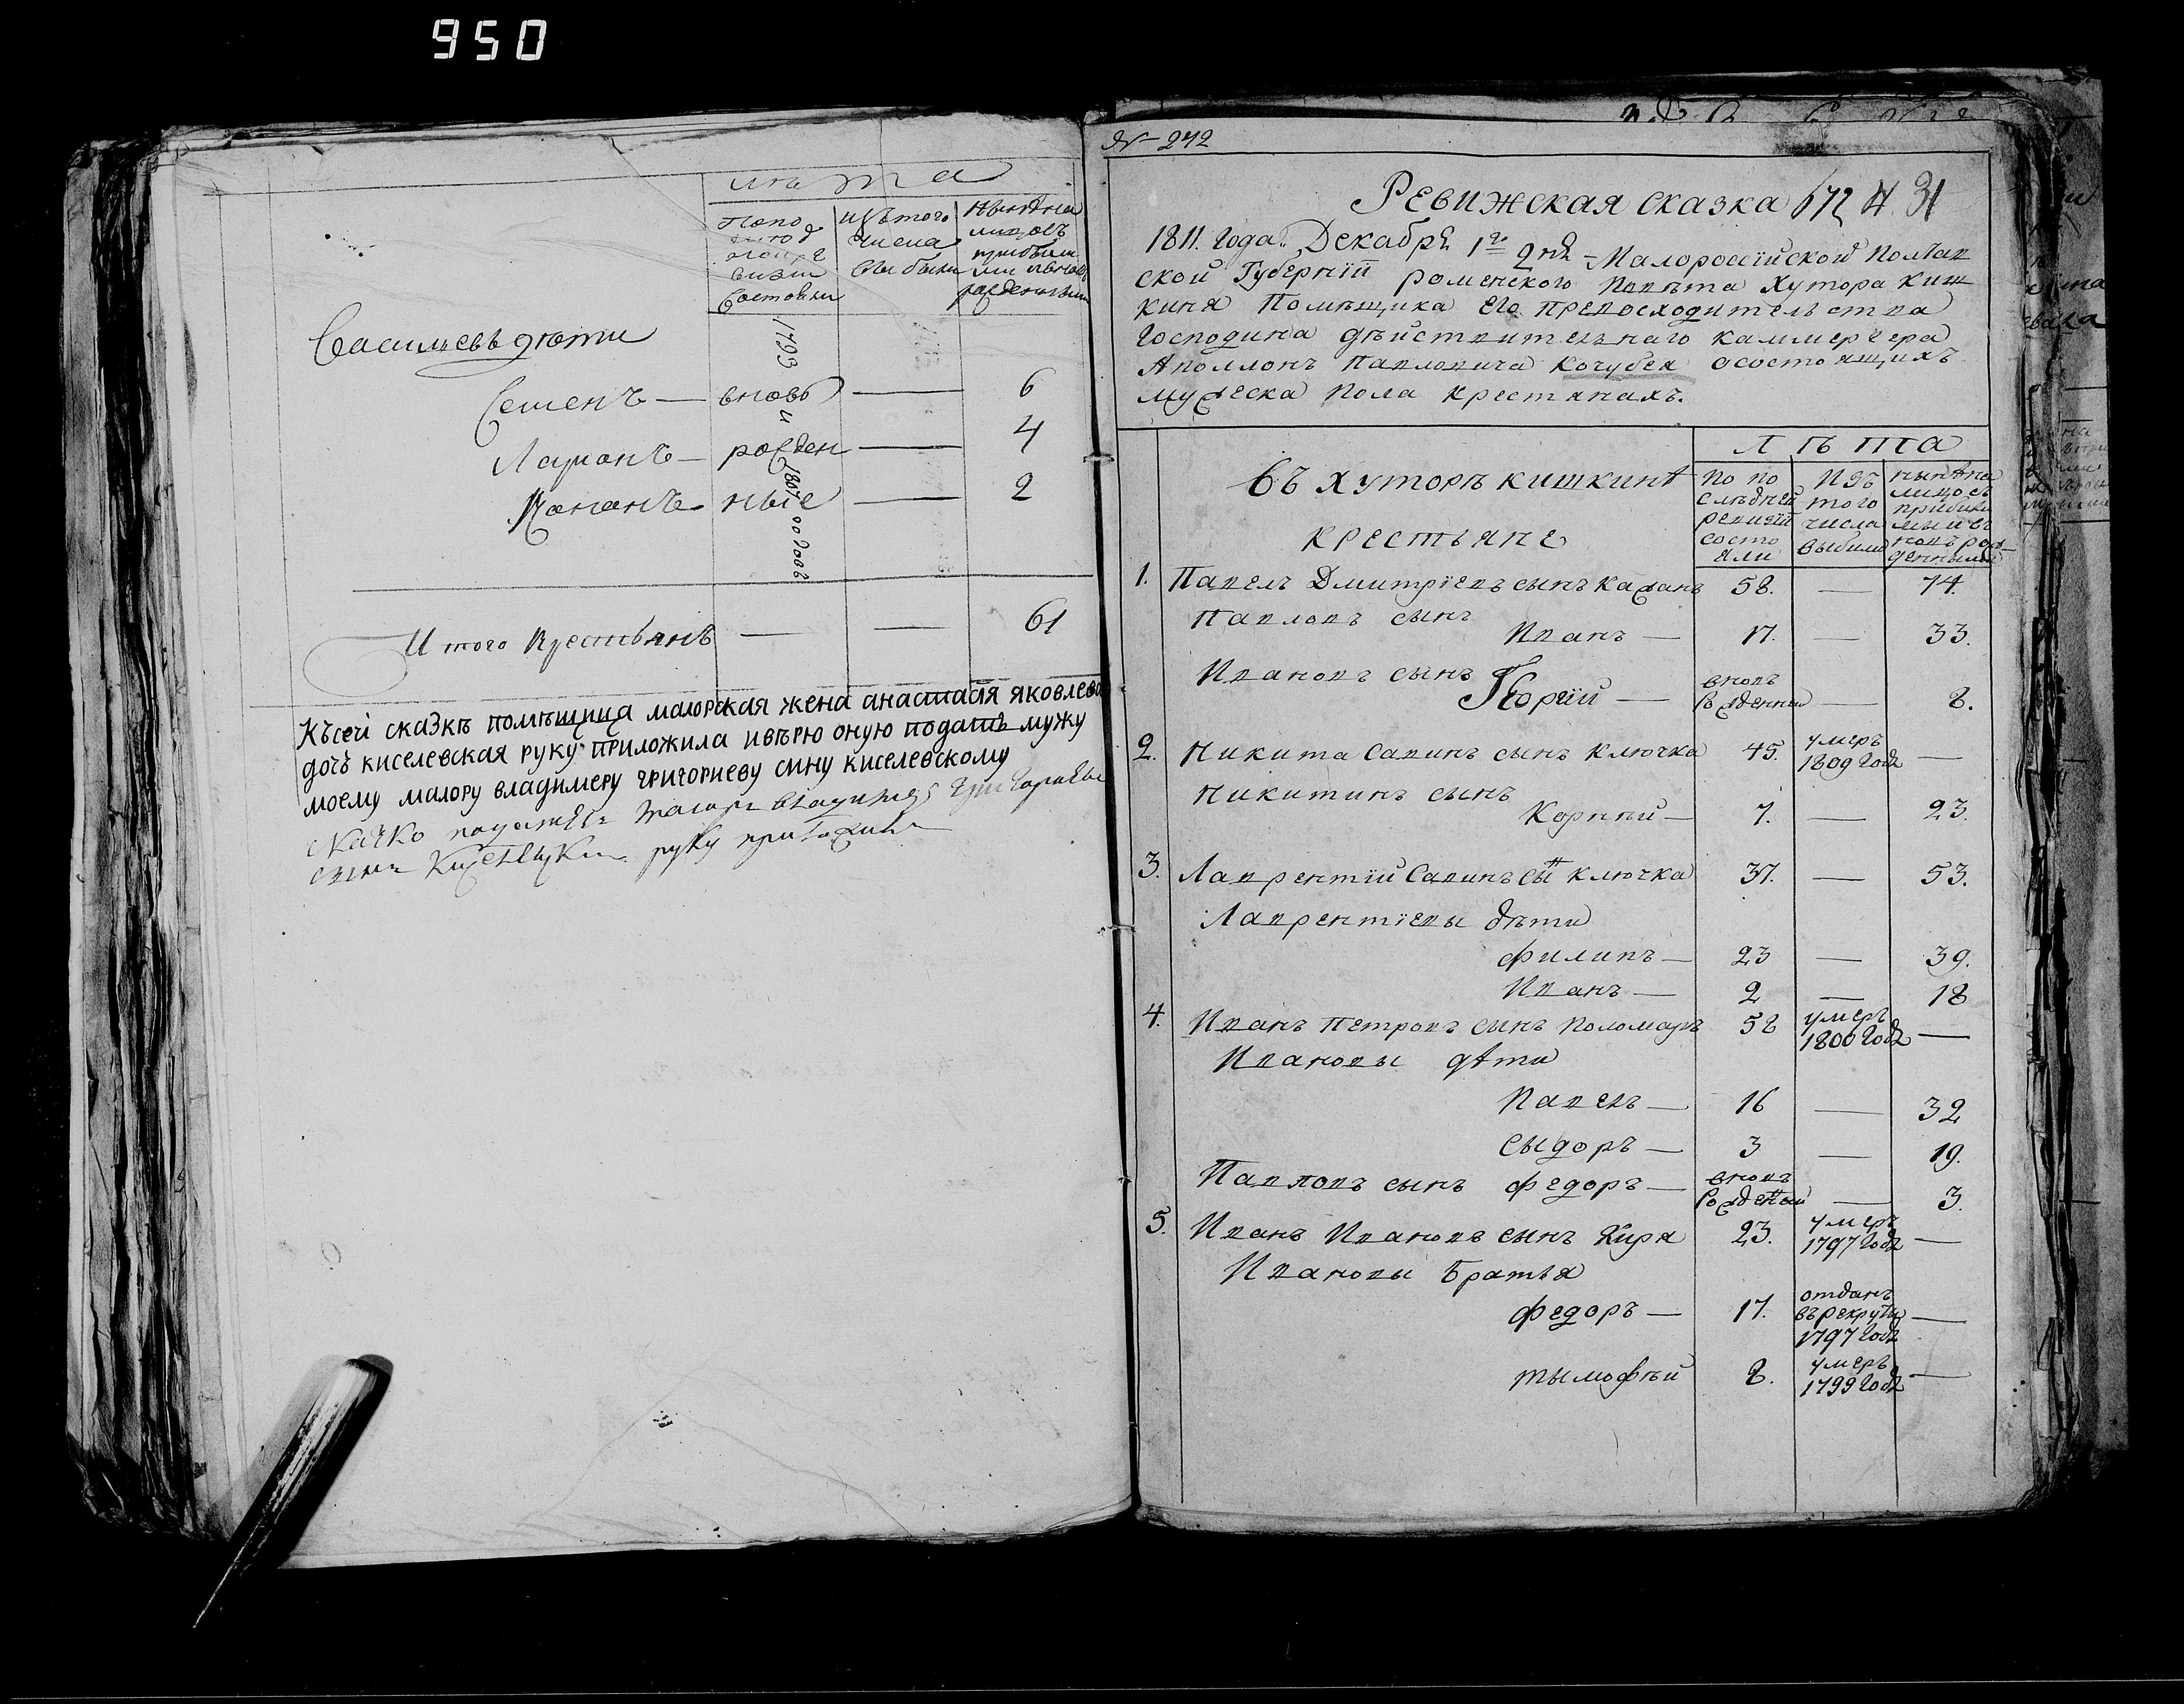 950
лѣта
По по
ревизіи
состояли
изъ того
числа
выбыли
нынѣ на
лицо съ
прибыли
рожденными
Васильевъ дѣти
1793
Семенъ — вновь — 6
и
Ларионъ — рожден — 4
1807
Кононъ — ные — 2
годовъ
Итого крестьянъ — — 61
Къ сей сказкѣ помѣщица маіорская жена анастасія яковлева
дочь киселевская руку приложила и вѣрю оную подать мужу
моему маіору владимеру григориеву сину киселевскому
маіоръ владимеръ григорьевъ
сынъ Киселевский руку приложилъ
№ 242
Ревижская сказка 672 4 31
1811. года Декабря 1го дня Малороссійской Полтав
ской Губерніи роменского повѣта хутора киш
кина помѣщика его превосходительства
господина дѣйствительнаго каммергера
Аполлонъ Павловича Кочубея о состоящихъ
мужеска пола крестянахъ.
лѣта
въ хуторѣ кишкинѣ
крестьяне
по по
слѣдней
ревизіи
состо
яли
изъ
того
числа
выбыли
нынѣ на
лицо съ
прибыли
новъ рож
денными
1. Павелъ Дмитріевъ сынъ Кажанъ 58. — 74.
Павловъ сынъ
Иванъ — 17. — 33.
Ивановъ сынъ Георгій — вновь рожденный — 8.
2. Никита Савинъ сынъ Ключка 45. умеръ 1809 года —
Никитинъ сынъ
Корний — 7. — 23.
3. Лаврентій Савинъ сынъ ключка 37. — 53.
Лаврентіевы дѣти
филипъ — 23 — 39.
Иванъ — 2 — 18
4. Иванъ Петровъ сынъ Поломаръ 58 умеръ 1800 года —
Ивановы дѣти
Павелъ — 16 — 32
Сыдоръ — 3 — 19.
Павловъ сынъ федоръ — вновь рожденный — 3.
5. Иванъ Ивановъ сынъ Киря 23. умеръ 1797 года —
Ивановы братья
федоръ — 17. отданъ въ рекруты 1797 года —
тымофѣй 8. умеръ 1799 года —